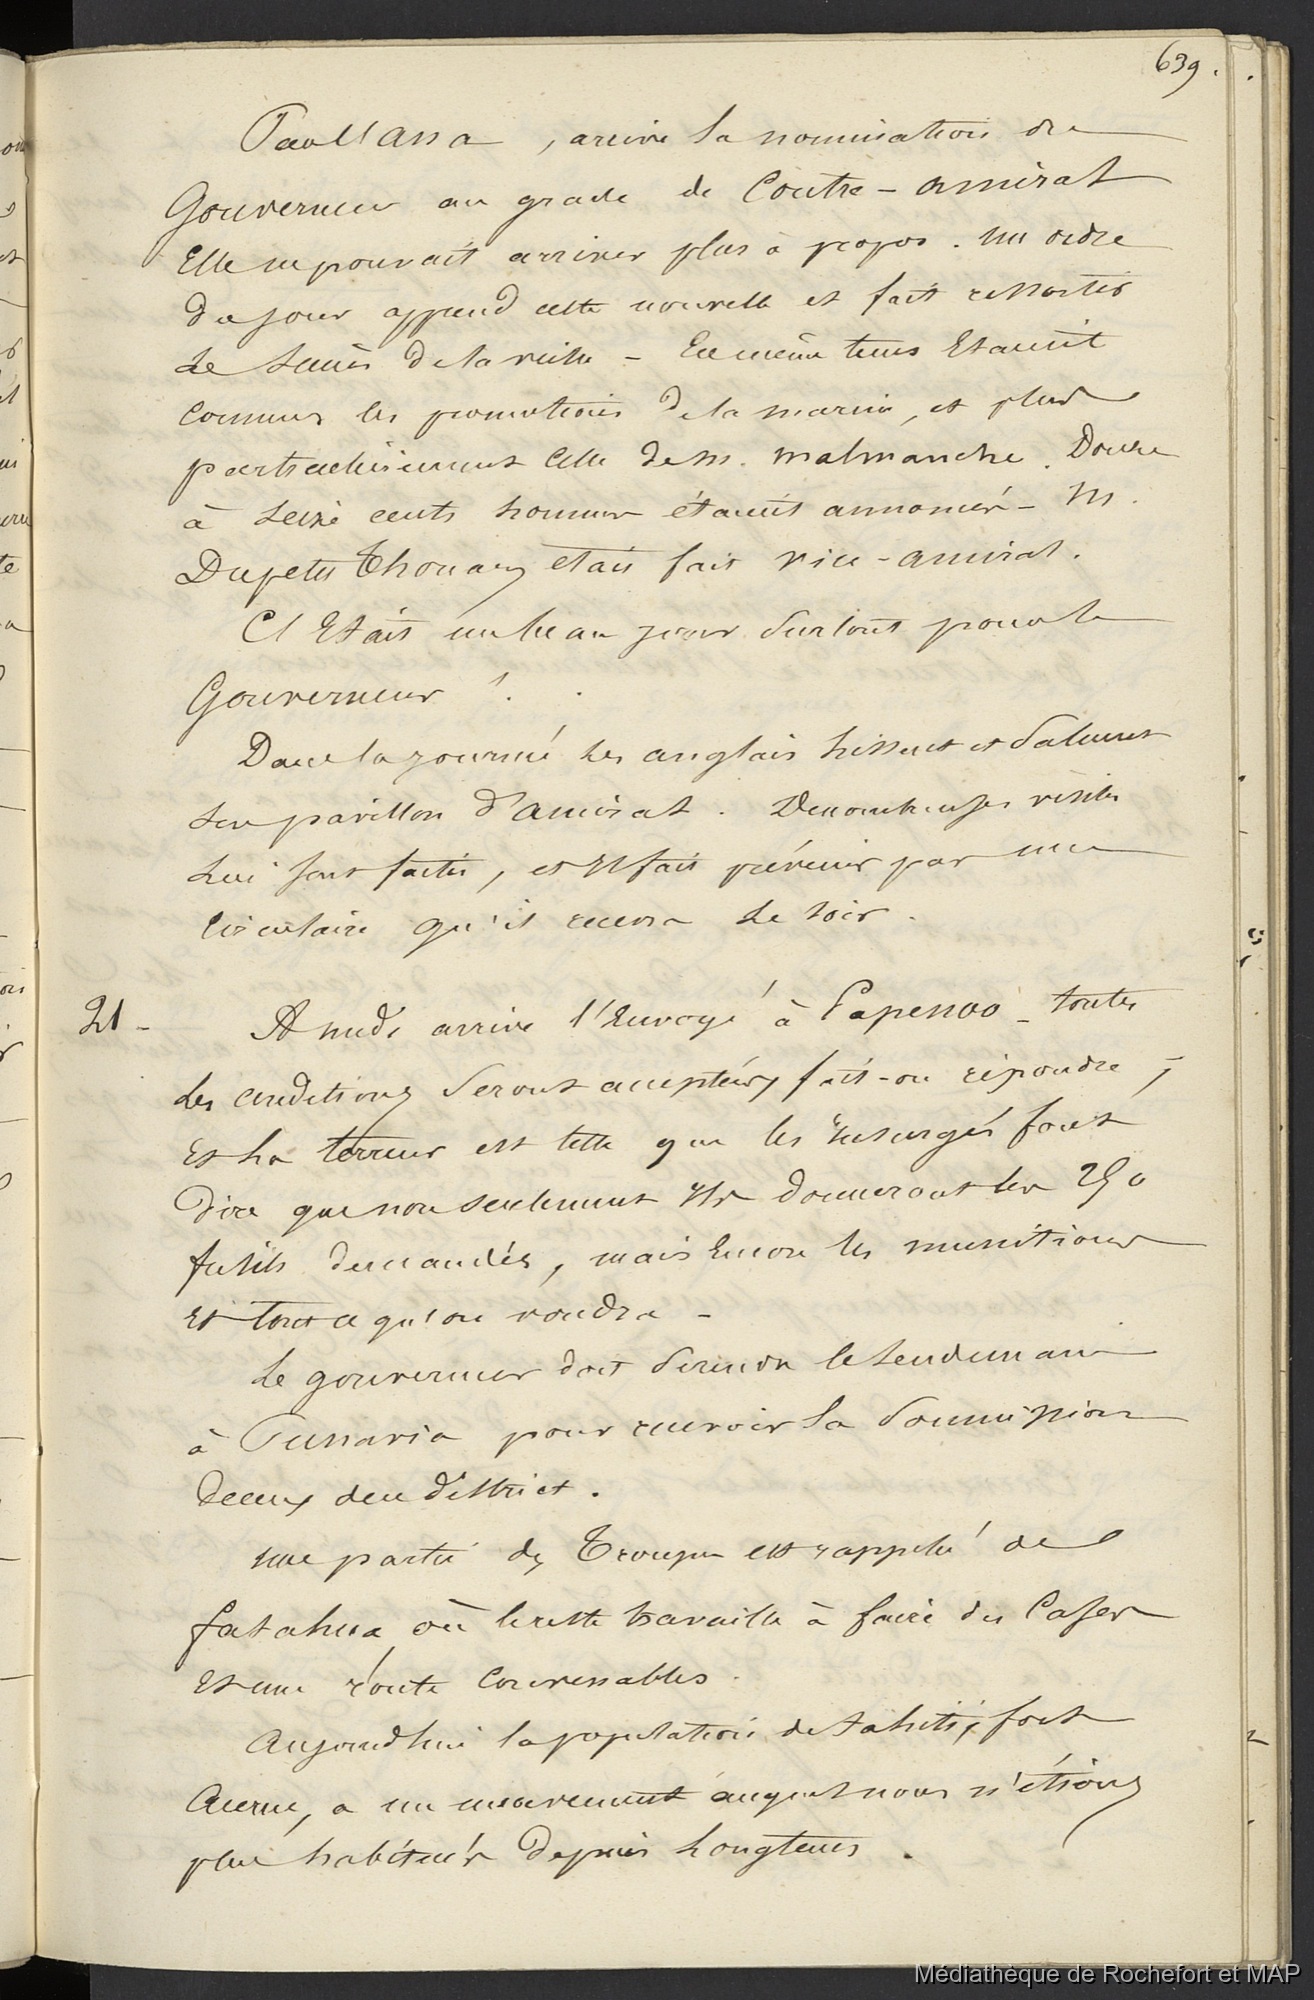 639.
Paul Anna, arrive la nomination du
Gouverneur au grade de Contre-amiral
Elle ne pouvait arriver plus à propos. un ordre
du jour apprend cette nouvelle et fait ressortir
le succès de la veille - En même tems Etaient
connues les promotions de la marine, et plus
particulièrement celle de M. malmanche. Douze
à seize cents hommes étaient annoncés - M.
Dupetit Thouars était fait vice-amiral.
C'Etait un beau jour surtout pour le
Gouverneur !
Dans la journée les anglais hissent et saluent
son pavillon d'amiral. De nombreuses visites
lui sont faites, et Il fait prévenir par une
circulaire qu'il recevra le soir.
21 - A midi arrive l'Envoyé à Papenoo - toutes
les conditions seront acceptées, fait-on répondre,
Et la terreur est telle que les Insurgés font
dire que non seulement Ils donneront les 250
fusils demandés, mais Encore les munitions
Et tout ce qu'on voudra -
Le gouverneur doit se rendre le lendemain
à Punavia pour recevoir la soumission
de ceux de ce district.
une partie des Troupes est rappelé de
fatahua où le reste travaille à faire des Cases
Et une route convenables.
Aujourd'hui la population de tahiti, fort
accrue, a un mouvement auquel nous n'étions
plus habitués depuis longtems.
Médiathèque de Rochefort et MAP